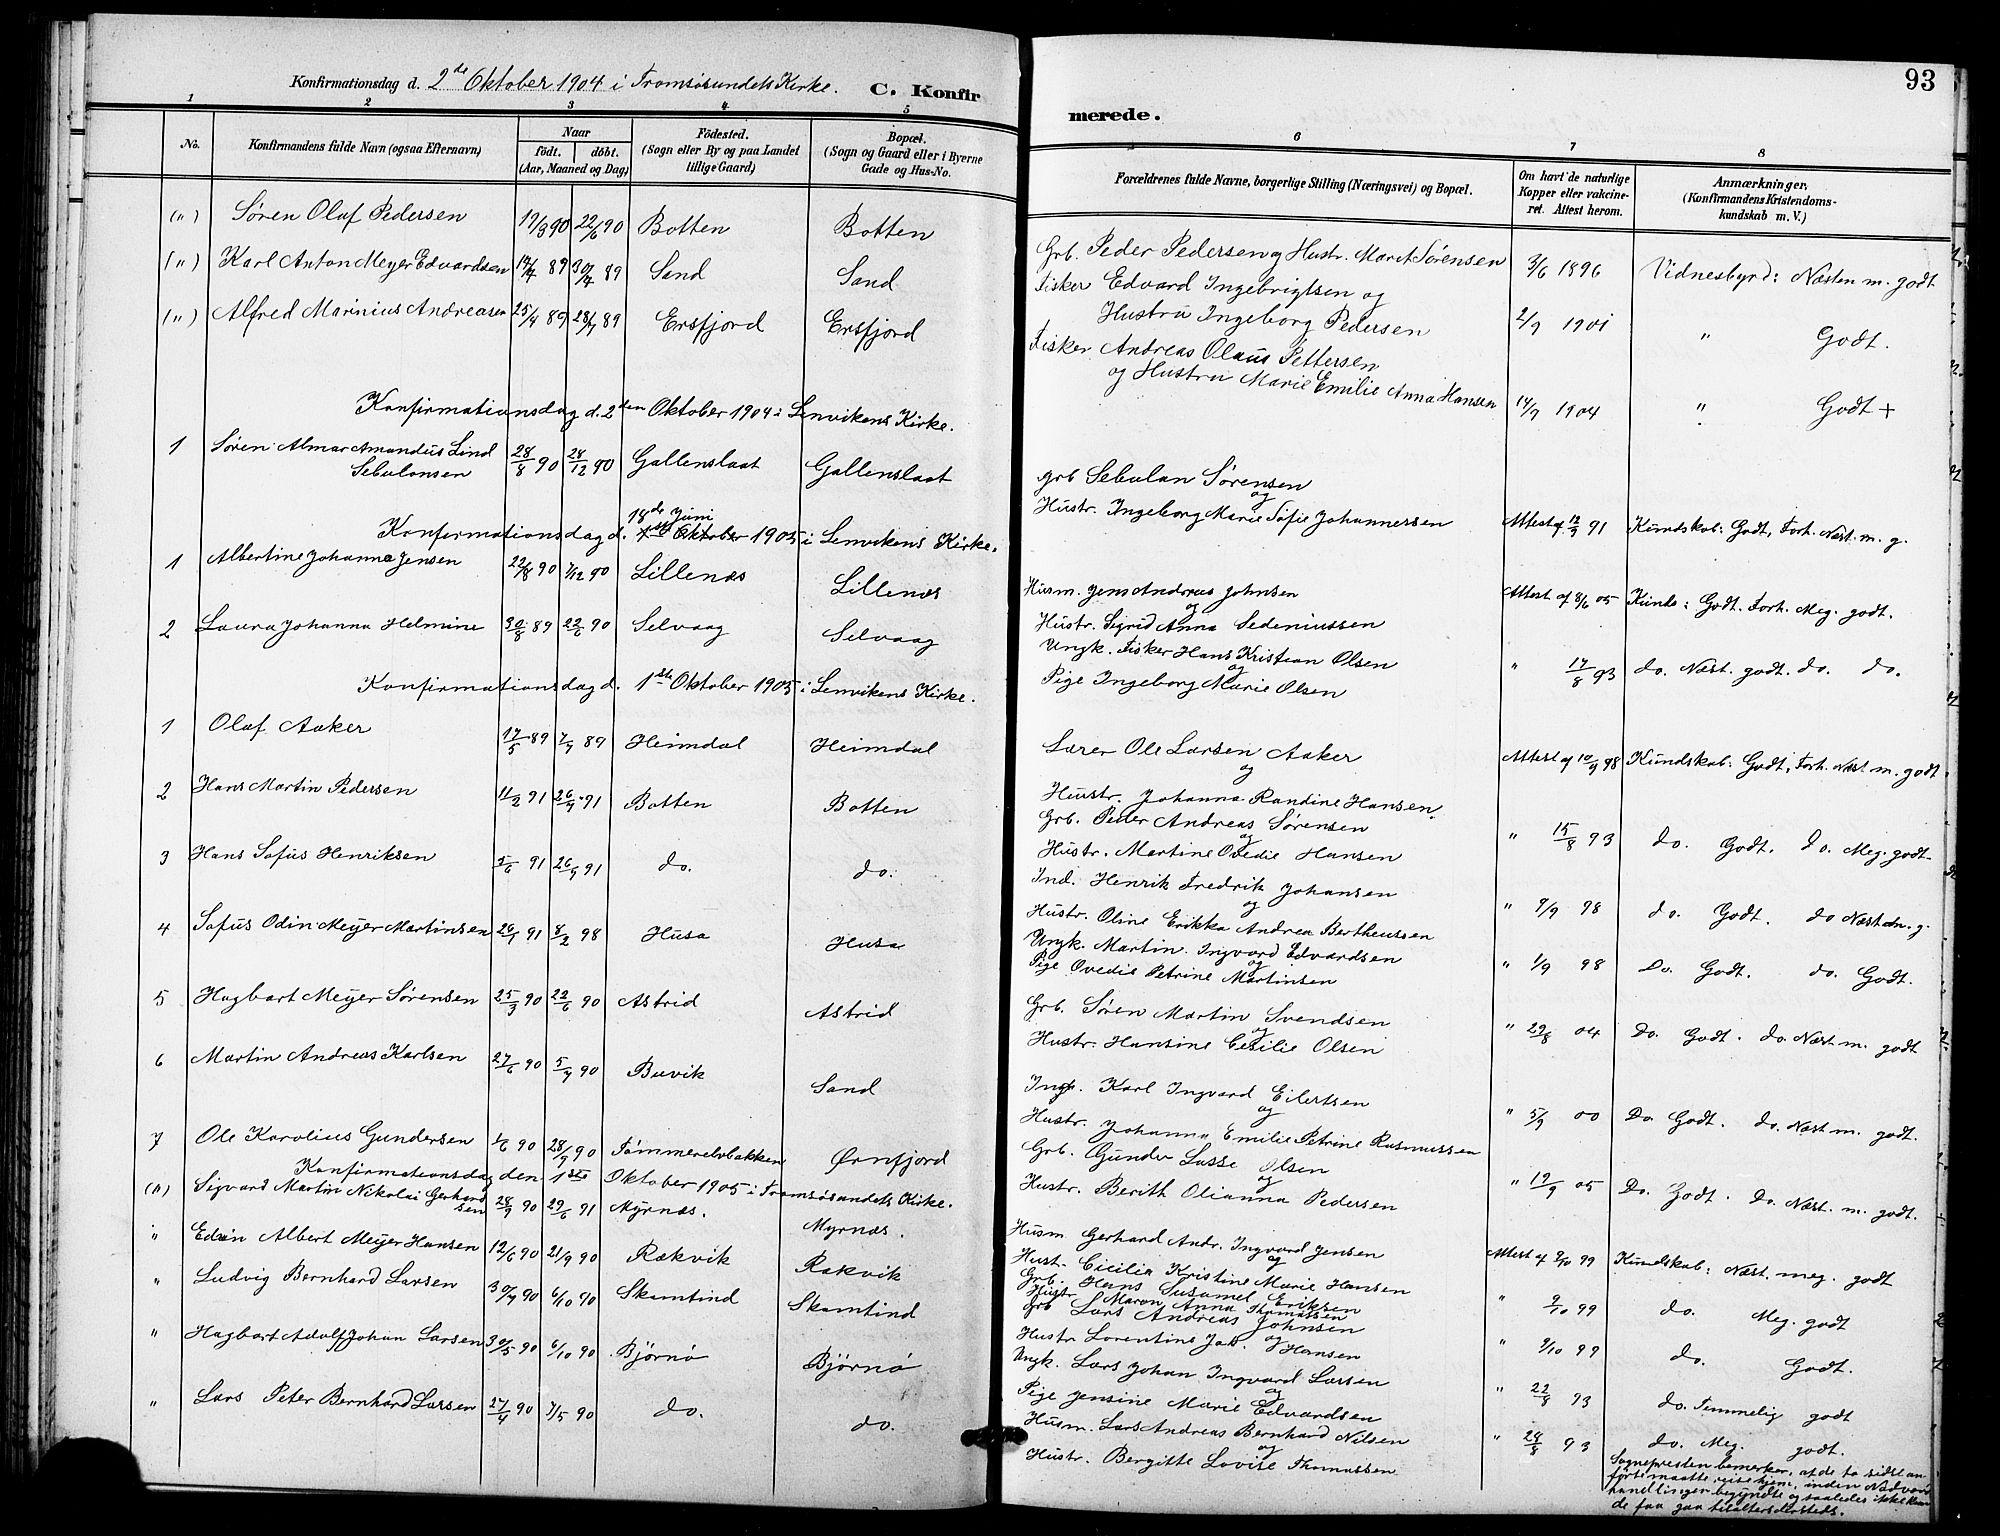 Konfirmationsdag d. 2de Oktober 1904 i Tromsøsundets Kirke. C. Konfir
1 2 3 4 5
No. Konfirmandens fulde Navn (ogsaa Efternavn) Naar födt. döbt. (Aar, Maaned og Dag) Födested. (Sogn eller By og paa Landet tillige Gaard) Bopæl. (Sogn og Gaard eller i Byerne Gade og Hus-No.
(") Søren Olaf Pedersen 19/3 90 22/6 90 Botten Botten
(") Karl Anton Meyer Edvardsen 89 30/7 89 Sand Sand
(") Alfred Marinius Andreasen 25/4 89 28/7 89 Ersfjord Ersfjord
Konfirmationsdag d. 2den Oktober 1904 i Lenvikens Kirke.
1 Søren Almar Amandus Lind 28/8 90 28/12 90 Gallenslaat Gallenslaat
Sebulonsen
18de Juni
Konfirmationsdag d. 1ste Oktober 1905 i Lenvikens Kirke.
1 Albertine Johanna Jensen 22/8 90 7/12 90 Lillenæs Lillenæs
2 Laura Johanna Helmine 30/8 89 22/6 90 Selvaag Selvaag
Konfirmationsdag d. 1ste Oktober 1905 i Lenvikens Kirke.
1 Olaf Aaker 17/5 89 7/7 89 Heimdal Heimdal
2 Hans Martin Pedersen 11/2 91 26/7 91 Botten Botten
3 Hans Sofus Henriksen 91 26/9 91 do. do.
4 Sofus Odin Meyer Martinsen 91 8/2 98 Husa Husa
5 Hagbart Meyer Sørensen 25/3 90 22/6 90 Astrid Astrid
6 Martin Andreas Karlsen 27/6 90 90 Buvik Sand
7 Ole Karolius Gundersen 90 28/9 90 Tømmerelvbakken Ørnfjord
Konfirmationsdag den 1ste Oktober 1905 i Tromsøsundets Kirke.
(") Sigvard Martin Nikolai Gerhard 28/9 90 29/6 91 Myrnæs. Myrnæs.
sen
" Edvin Albert Meyer Hansen 12/6 90 21/9 90 Rakvik Rakvik
" Ludvig Bernhard Larsen 30/7 90 6/10 90 Skamtind Skamtind
" Hagbart Adolf Johan Larsen 30/5 90 6/10 90 Bjørnø Bjørnø
" Lars Peter Bernhard Larsen 27/4 90 7/5 90 do. do.
93
merede.
6 7 8
Forældrenes fulde Navne, borgerlige Stilling (Næringsvei) og Bopæl. Om havt de naturlige Kopper eller vakcineret. Attest herom. Anmærkninger. (Konfirmandens Kristendomskundskab m. V.)
Grb. Peder Pedersen og Hustr. Maret Sørensen 3/6 1896 Vidnesbyrd: Næsten m. godt
Fisker Edvard Ingebrigtsen og
Hustru Ingeborg Pedersen 2/9 1901 " Godt.
Fisker Andreas Olaus Pettersen
og Hustru Marie Emilie Anna Hansen 14/9 1904 " Godt +
grb Sebulon Sørensen
og
Hustr. Ingeborg Marie Sofie Johannessen Attest af 91 Kundskab: Godt, Forh. Næst m. g.
Husm. Jens Andreas Johnsen Attest af 8/6 05 Kunds: Godt. Forh. Meg. godt.
og
Hustr. Sigrid Anna Sedeniussen
Ungk. Fisker Hans Kristian Olsen
og " 17/8 93 do. Næst. godt. do. do.
Pige Ingeborg Marie Olsen
Lærer Ole Larsen Aaker Attest af 10/9 98 Kundskab: Godt, Forh. Næst m. godt
og
Hustr. Johanna Randine Hansen.
Grb. Peder Andreas Sørensen
og " 15/8 93 do. Godt. do. Meg. godt
Hustr. Martine Ovedie Hansen
Ind. Henrik Fredrik Johansen
og " 9/9 98 do. Godt. do Næsten m. g.
Hustr. Oline Erikka Andrea Bertheussen
Ungk. Martin Ingvard Edvardsen
og " 1/9 98 do. Godt. do. Godt.
Pige Ovedie Petrine Martinsen
Grb. Søren Martin Svendsen
og " 29/8 04 Do. Godt. do. Næst m. godt
Hustr. Hansine Cecilie Olsen
Karl Ingvard Eilertsen
og " 5/9 00 Do. Godt. do. Næst m. godt.
Hustr. Johanna Emilie Petrine Rasmussen
Grb. Gunder Lasse Olsen
og " 19/9 05 Do. Godt. Do. Næst. m. godt.
Hustr. Berith Olianna Pedersen
Husm. Gerhard Andr. Ingvard Jensen
og Attest af 9/10 99 Kundskab: Næst. meg. godt
Hust. Cicilia Kristine Marie Hansen
Grb. Hans Susamel Eriksen " 9/10 99 do. Meg. godt
Hustr. Maren Anna Thomassen
Grb Lars Andreas Johnsen
og " 9/10 99 do. Godt.
Hustr Lorentine Jak. Hansen
Ungk. Lars Johan Ingvard Larsen
og " 22/8 93 do. Temmelig godt
Pige Jensine Marie Edvardsen
Husm. Lars Andreas Bernhard Nilsen
og " 28/8 93 do. Meg. godt.
Hustr. Bergitte Lovise Thomassen
Sognepresten bemerker, at de to sidst an-
førte maatte reise hjem, inden Nadver-
handlingen begyndte og saaledes ikke kun-
de faa gaa tilalters